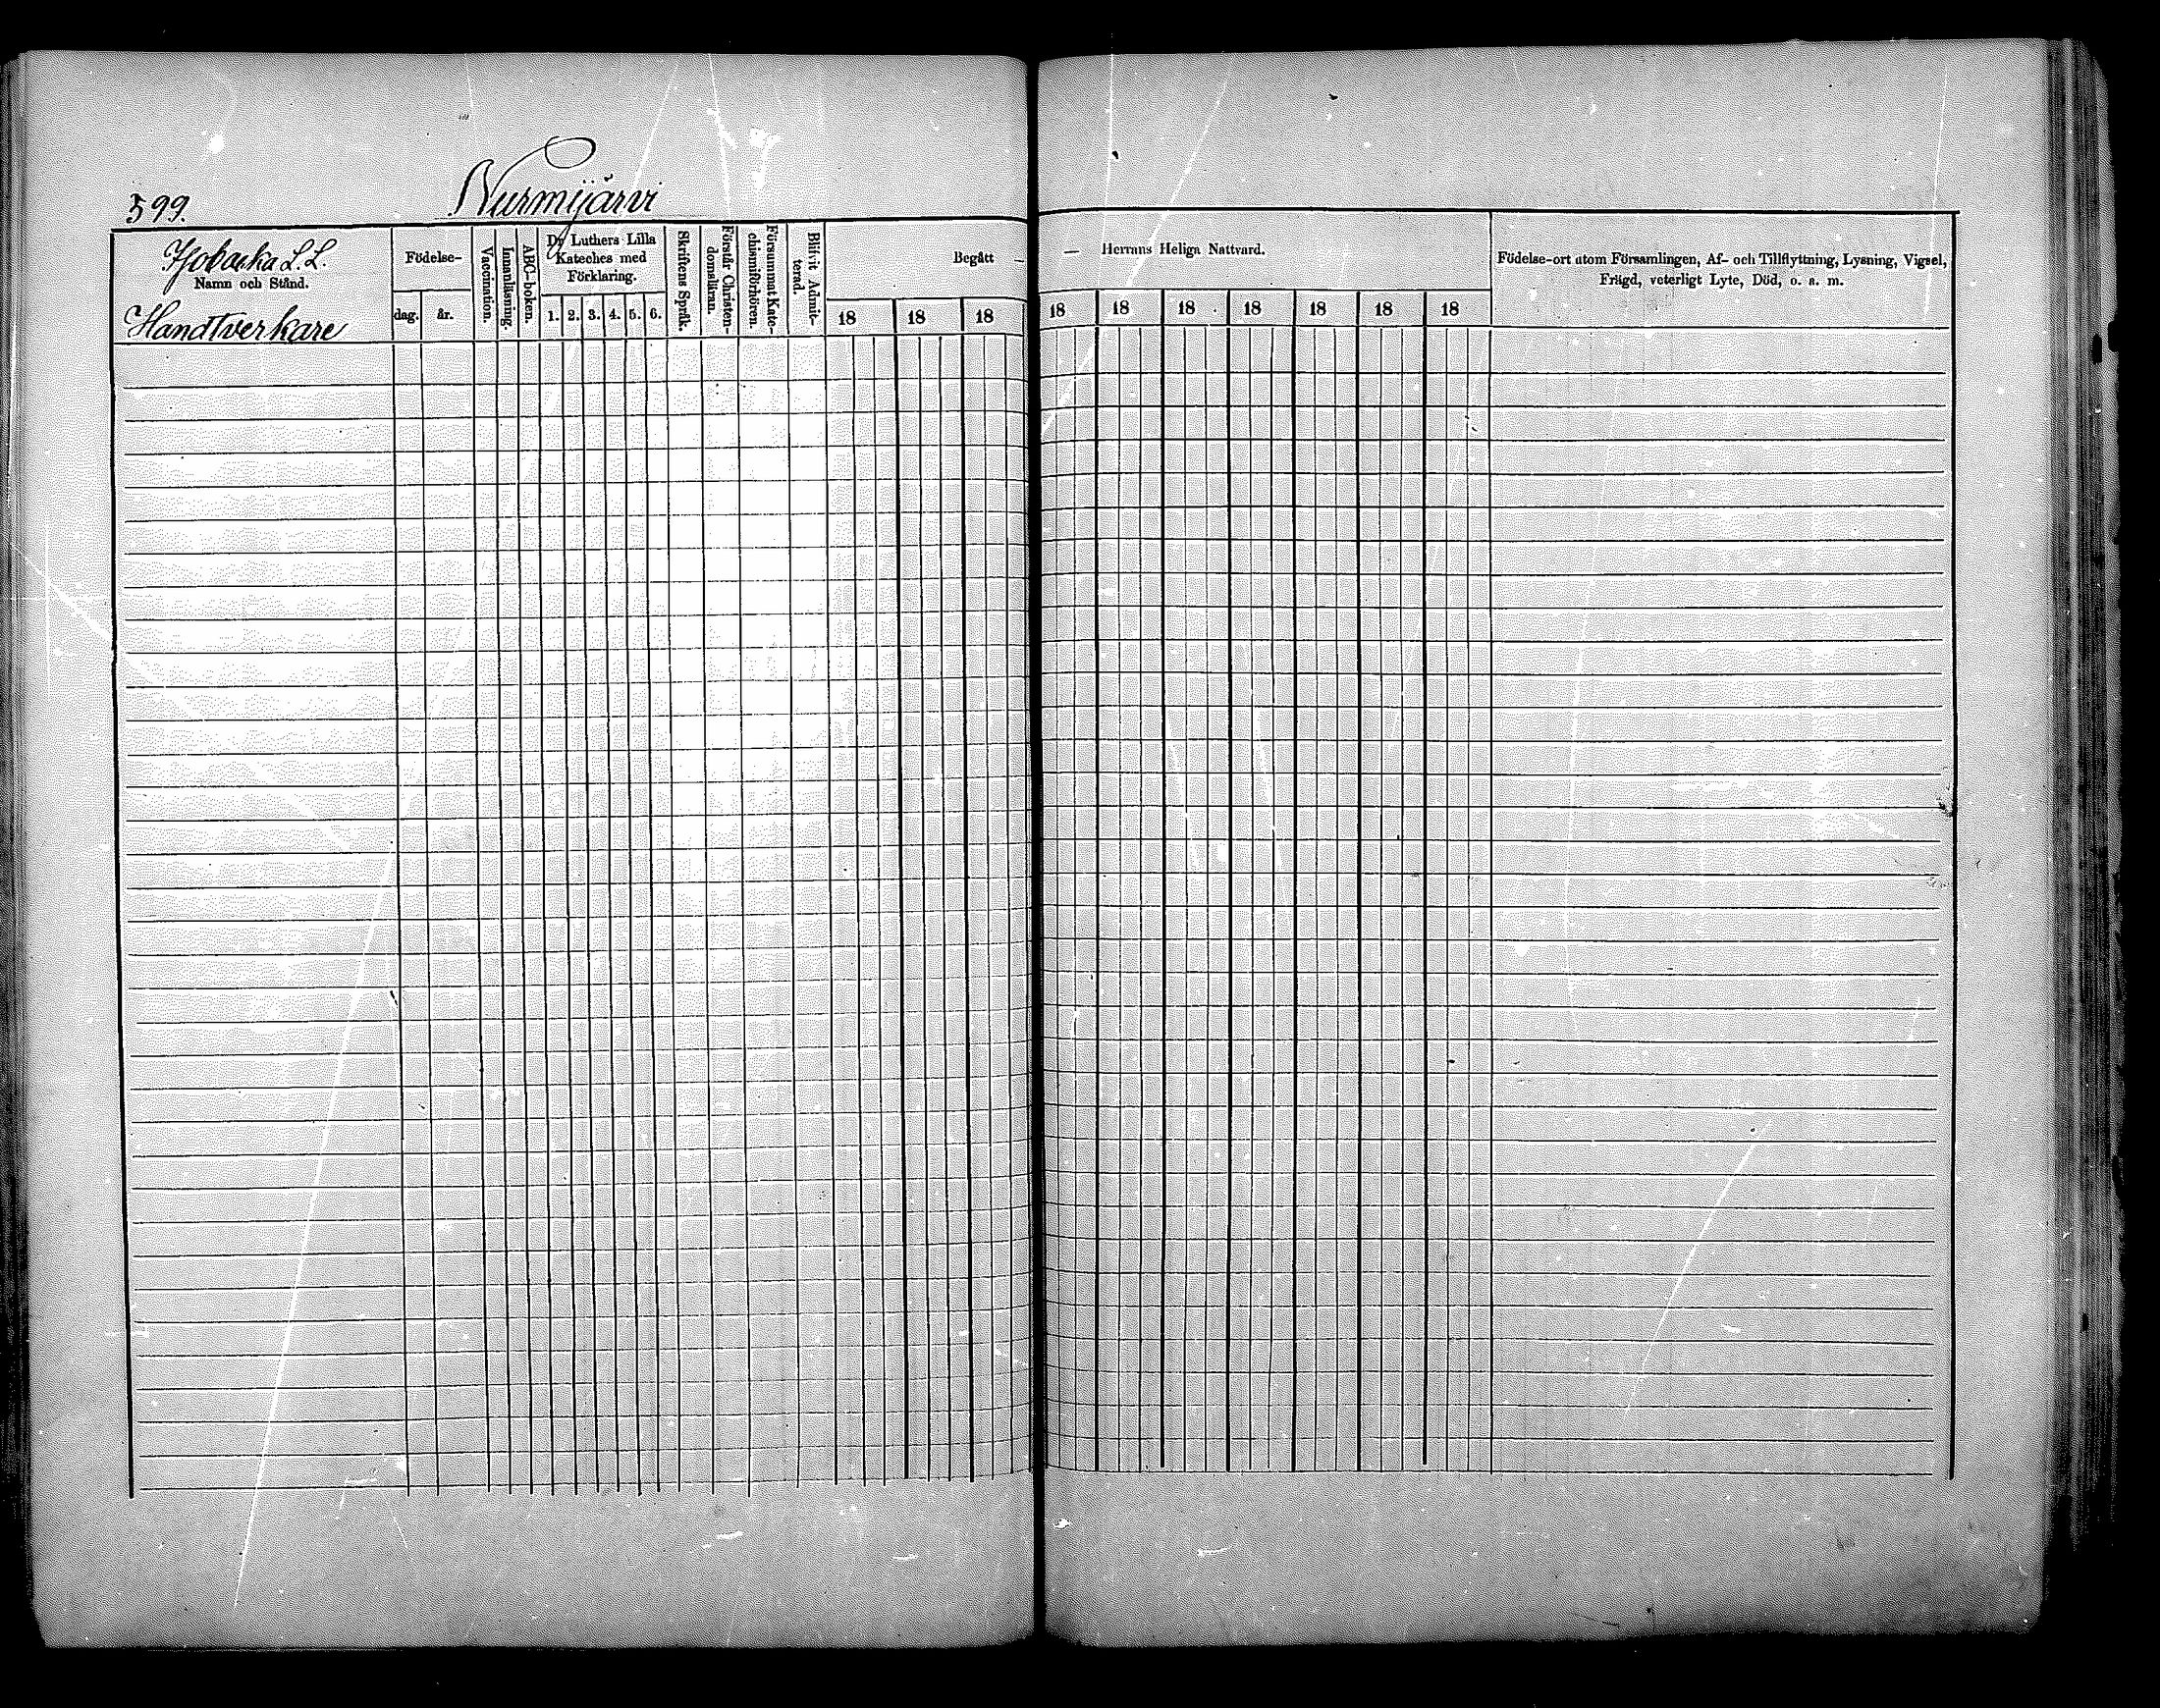 599.
Nurmijärvi
L. L.
Namn och Stånd.
Handtverkare
Födelse-
dag.
år.
Vaccination.
Innanläsning.
ABC-boken.
Dr Luthers Lilla
Kateches med
Förklaring.
1. 2. 3. 4. 5. 6.
Skriftens Språk.
Förstår Christen-
domsläran.
Försummat Kate-
chismiförhören.
Blifvit Admit-
terad.
Begått —
18 18 18
— Herrans Heliga Nattvard.
18 18 18 18 18 18 18
Födelse-ort utom Församlingen, Af- och Tillflyttning, Lysning, Vigsel,
Frägd, veterligt Lyte, Död, o. s. m.